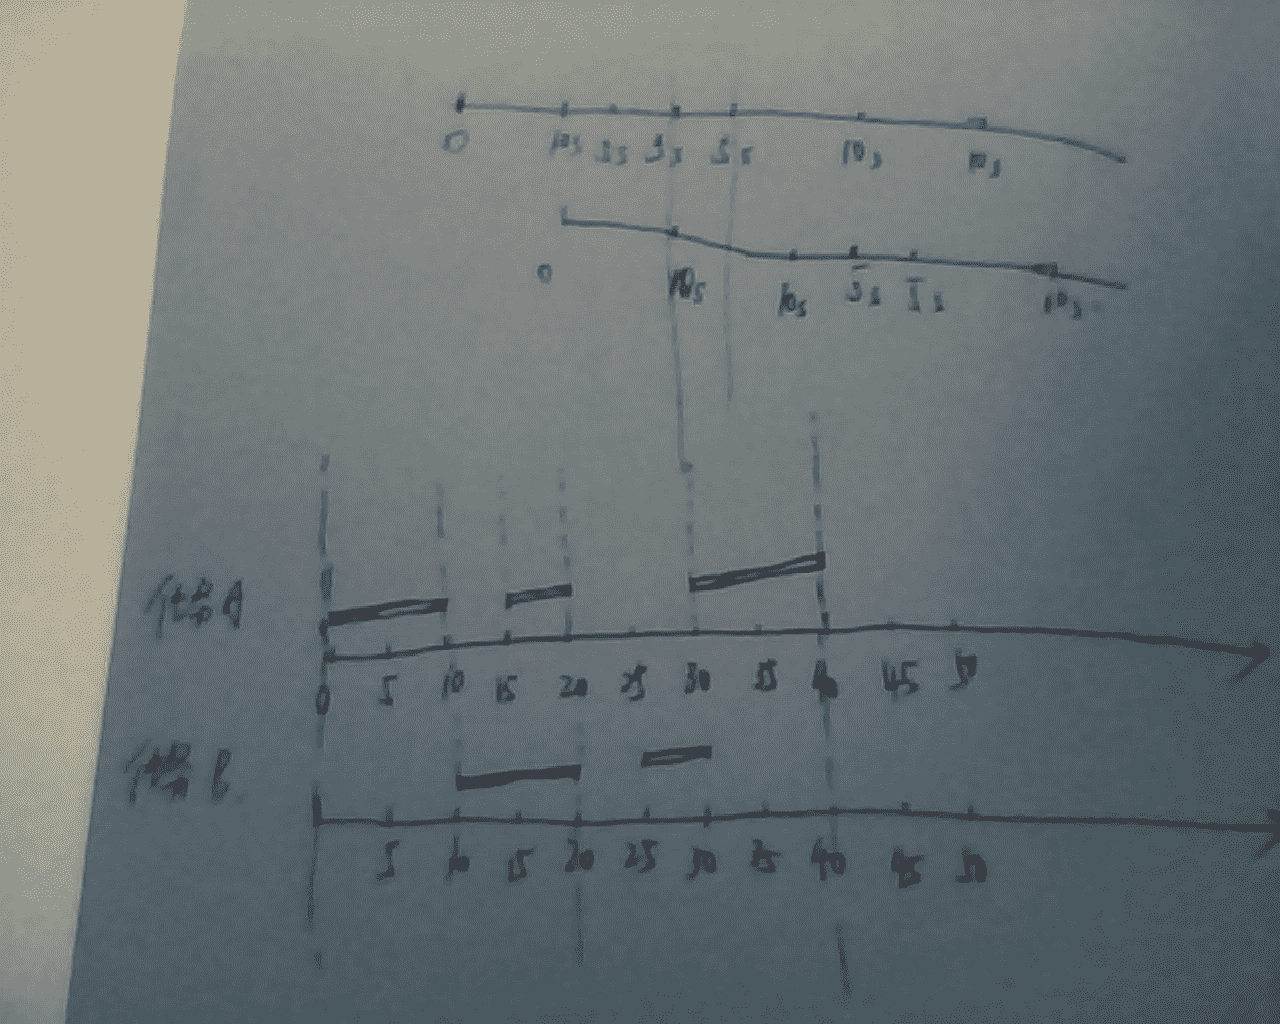 0 10s 5s 5s 5s 10s 10s
0 10s 10s 5s 5s 10s
任务A
0 5 10 15 20 25 30 35 40 45 50
任务B
5 10 15 20 25 30 35 40 45 50